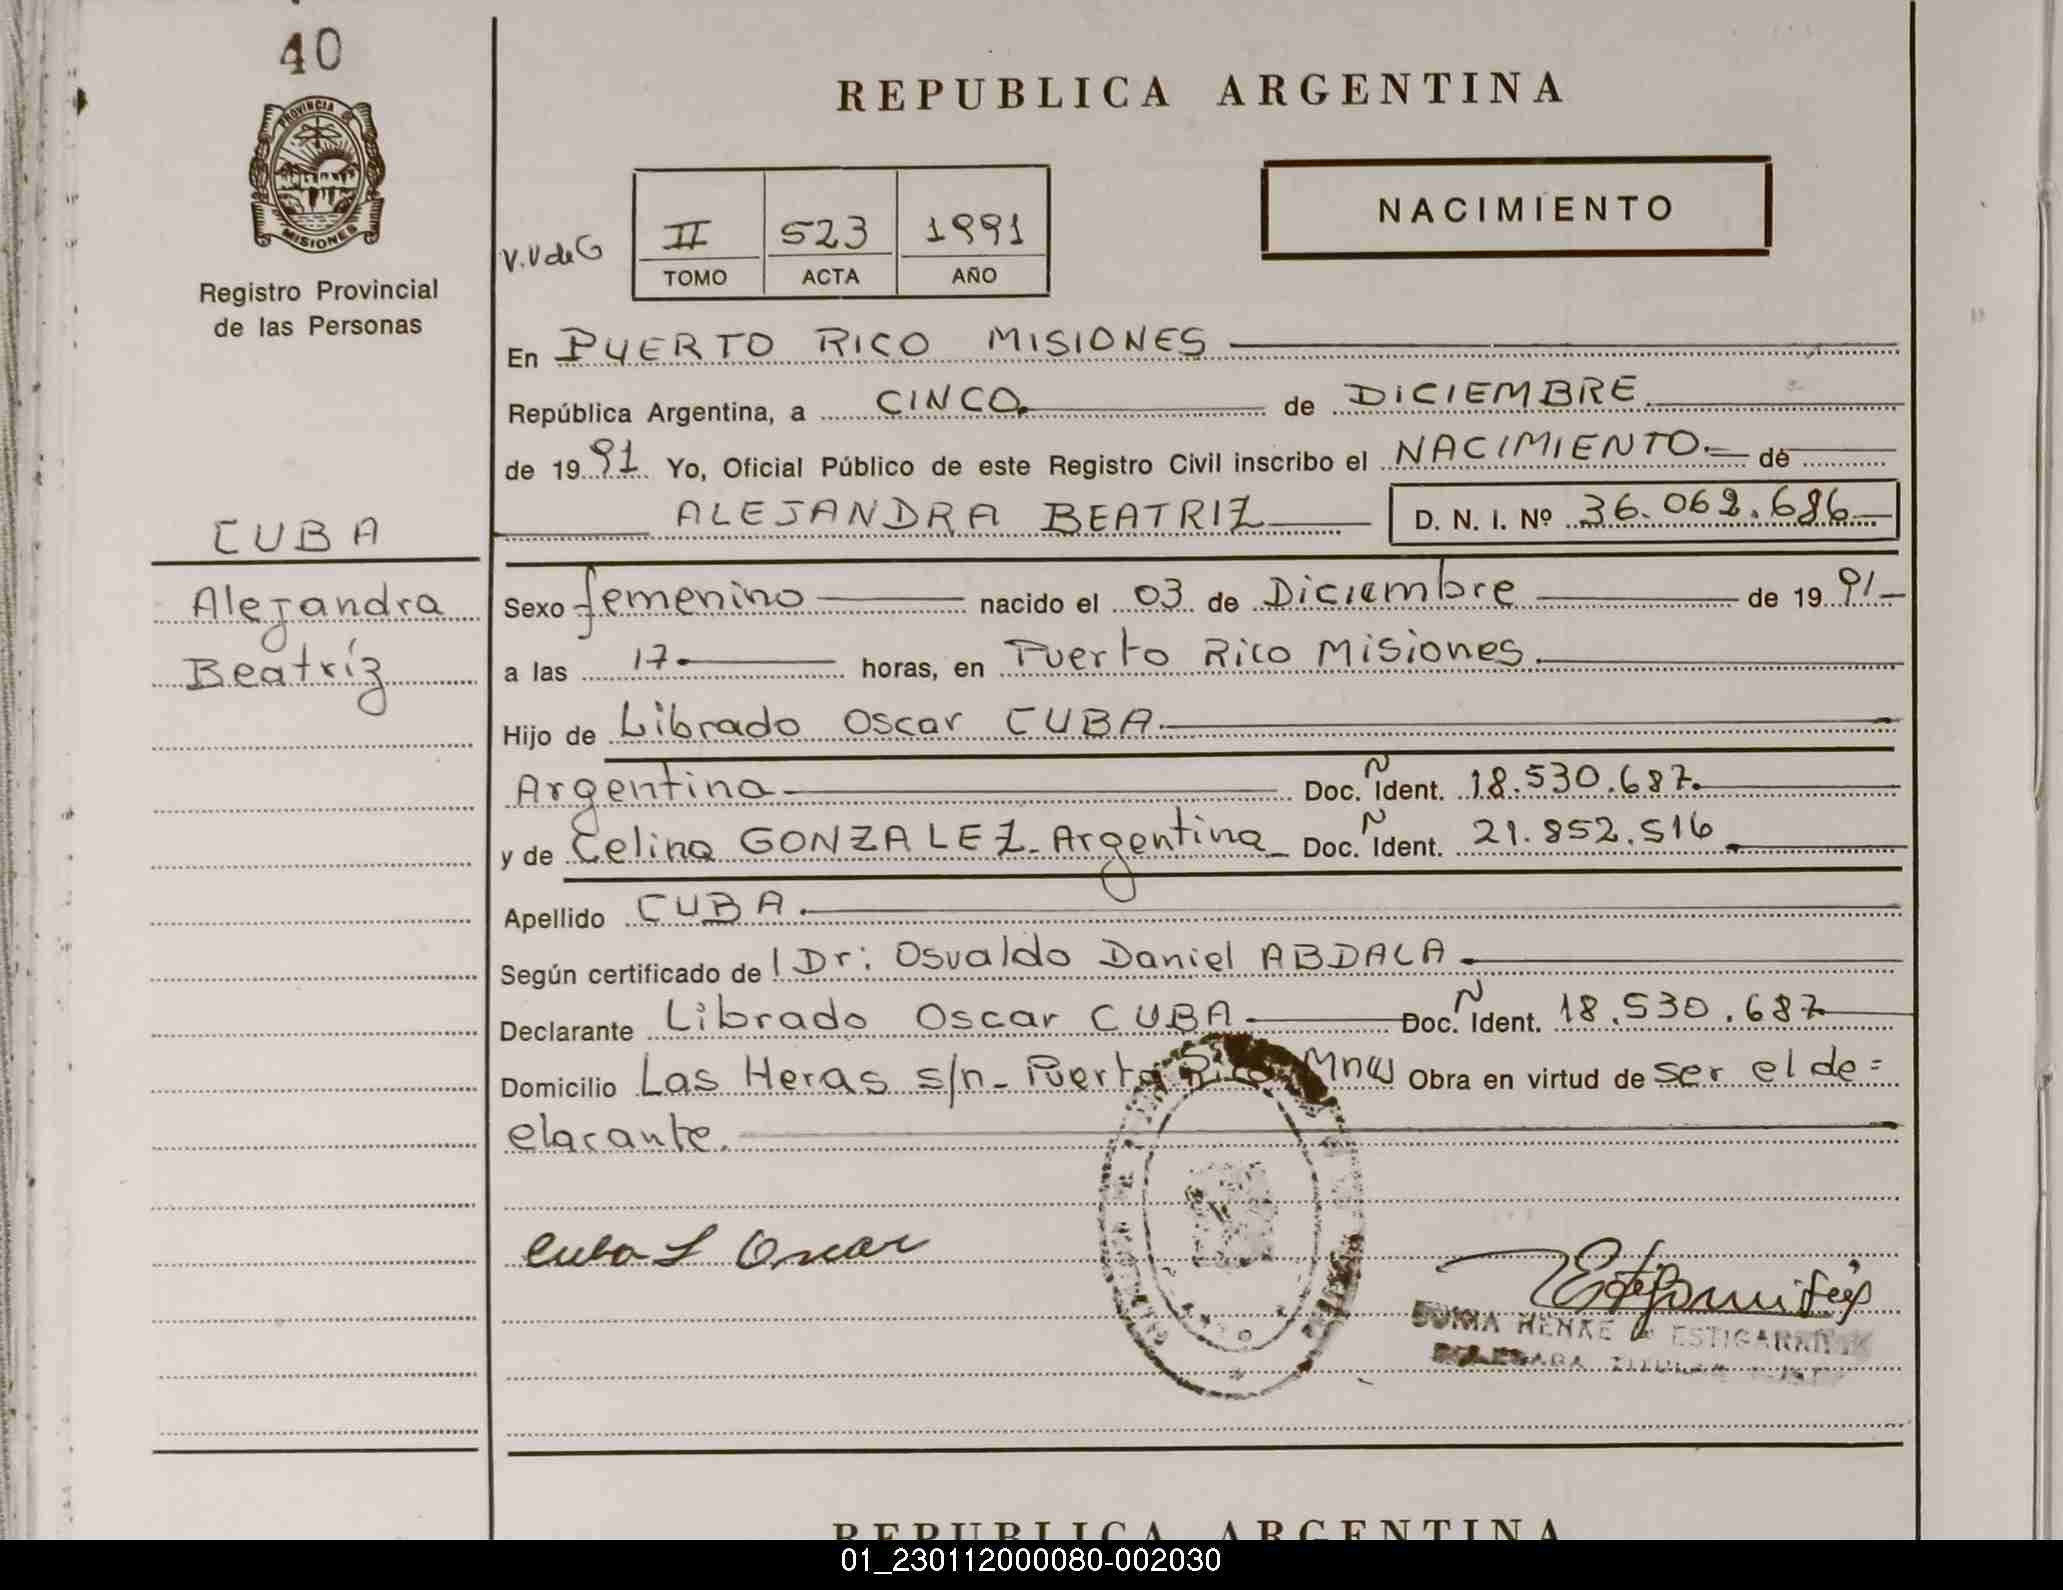 40
PROVINCIA DE
MISIONES
Registro Provincial
de las Personas
REPUBLICA ARGENTINA
NACIMIENTO
V.V de G
II 523 1991
TOMO ACTA AÑO
En PUERTO RICO MISIONES
República Argentina, a CINCO de DICIEMBRE
de 1991 Yo, Oficial Público de este Registro Civil inscribo el NACIMIENTO de
ALEJANDRA BEATRIZ D. N. I. Nº 36.062.686
CUBA
Alejandra
Beatríz
Sexo femenino nacido el 03 de Diciembre de 1991
a las 17 horas, en Puerto Rico Misiones
Hijo de Librado Oscar CUBA
Argentina Doc. Ñ Ident. 18.530.687
y de Celina GONZALEZ - Argentina Doc. Ñ Ident. 21.852.516
Apellido CUBA
Según certificado de Dr: Osvaldo Daniel ABDALA
Declarante Librado Oscar CUBA Doc. Ñ Ident. 18.530.687
Domicilio Las Heras s/n - Puerto Rico Mnes Obra en virtud de ser el de=
clarante.
Cuba L Oscar
HENKE de ESTIGARRIBIA
TITULAR
REPUBLICA ARGENTINA
01_230112000080-002030